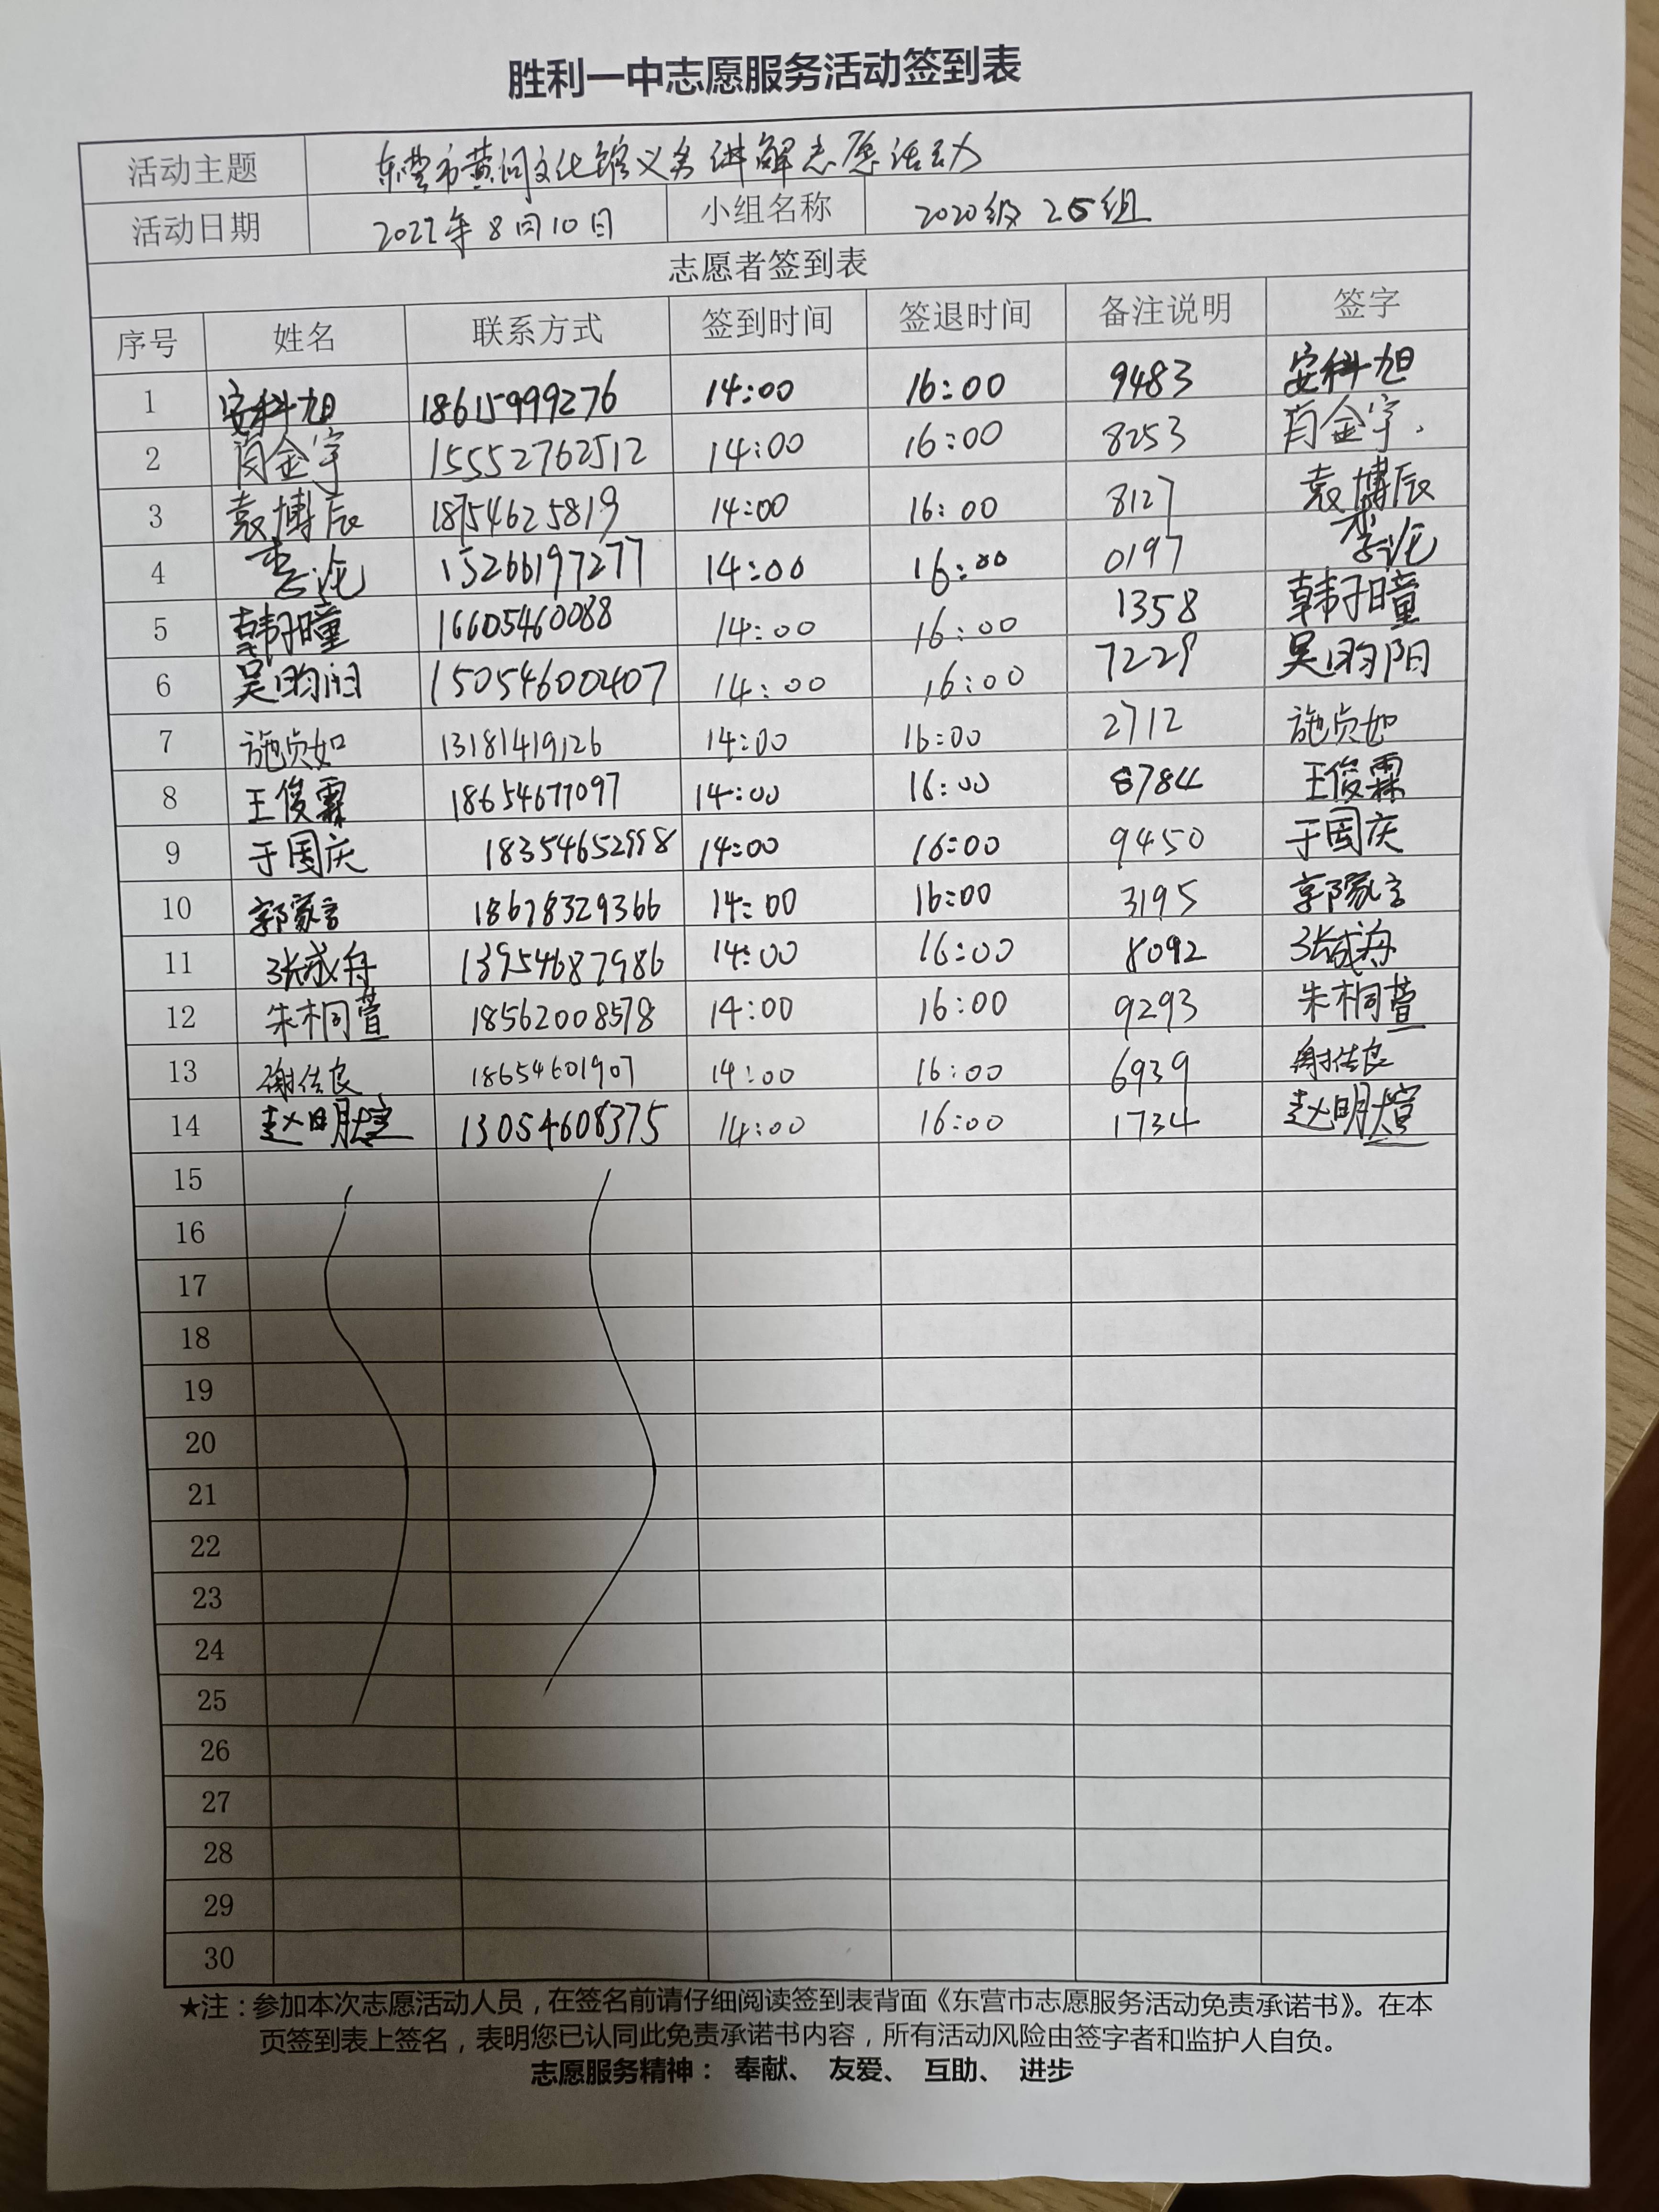 胜利一中志愿服务活动签到表
活动主题 东营市黄河文化馆义务讲解志愿活动
活动日期 2022年8月10日 小组名称 2020级25组
志愿者签到表
序号 姓名 联系方式 签到时间 签退时间 备注说明 签字
1 安科旭 18615999276 14:00 16:00 9483 安科旭
2 肖金宇 15552762512 14:00 16:00 8253 肖金宇.
3 袁博辰 18754625819 14:00 16:00 8127 袁博辰
4 李沱 15266197277 14:00 16:00 0197 李沱
5 韩子曈 16605460088 14:00 16:00 1358 韩子曈
6 吴昀阳 15054600407 14:00 16:00 7229 吴昀阳
7 施贞如 13181419126 14:00 16:00 2712 施贞如
8 王俊霖 18654677097 14:00 16:00 8784 王俊霖
9 于国庆 18354652998 14:00 16:00 9450 于国庆
10 郭家言 18678329366 14:00 16:00 3195 郭家言
11 张成舟 13954687986 14:00 16:00 8092 张成舟
12 朱桐萱 18562008578 14:00 16:00 9293 朱桐萱
13 谢佳良 18654601907 14:00 16:00 6939 谢佳良
14 赵明煊 13054608375 14:00 16:00 1734 赵明煊
15
16
17
18
19
20
21
22
23
24
25
26
27
28
29
30
★注：参加本次志愿活动人员，在签名前请仔细阅读签到表背面《东营市志愿服务活动免责承诺书》。在本
页签到表上签名，表明您已认同此免责承诺书内容，所有活动风险由签字者和监护人自负。
志愿服务精神： 奉献、 友爱、 互助、 进步